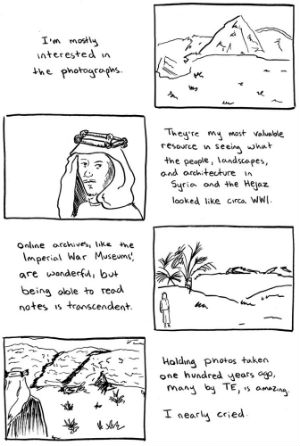 I'm mostly
interested in
the photographs.
They're my most valuable
resource in seeing what
the people, landscapes,
and architecture in
Syria and the Hejaz
looked like circa WWI.
Online archives, like the
Imperial War Museums',
are wonderful, but
being able to read
notes is transcendent.
Holding photos taken
one hundred years ago,
many by TE, is amazing.
I nearly cried.